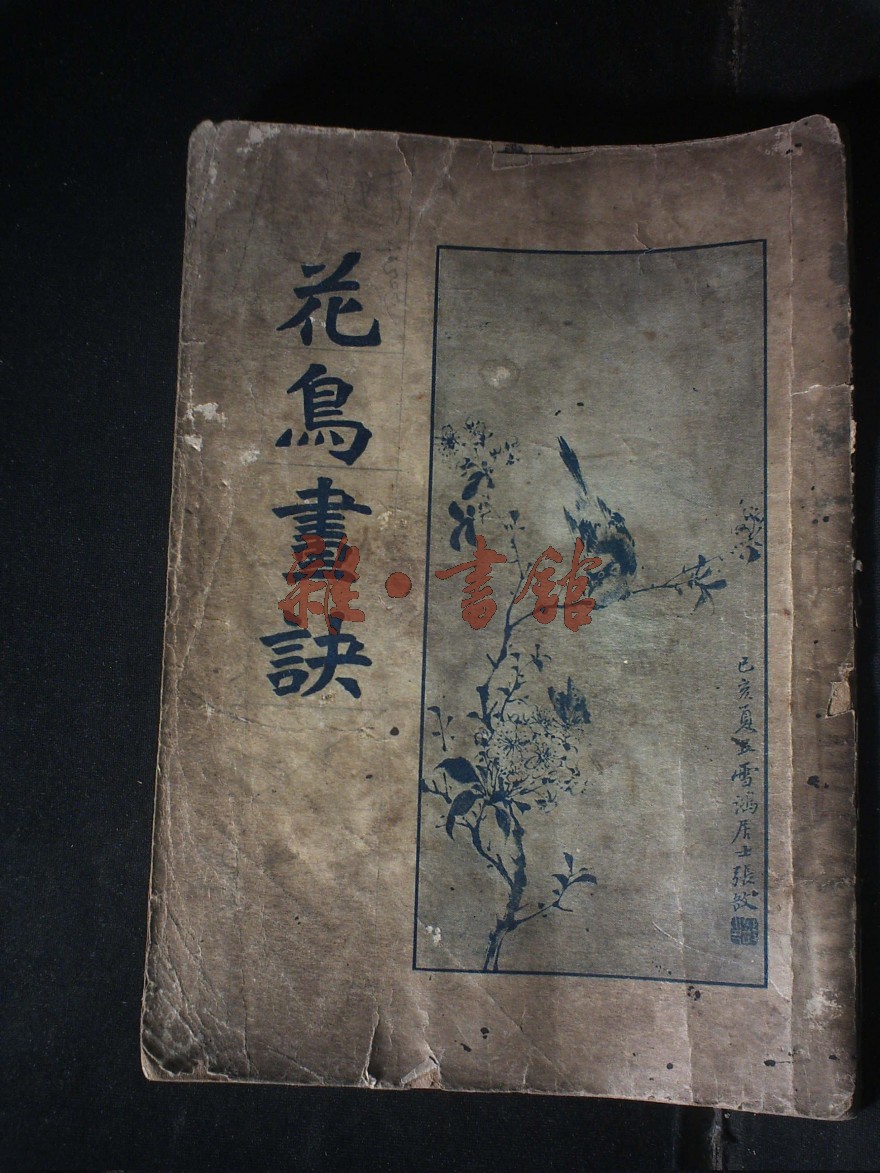 花鳥畫訣
雜·書館
己亥夏五雪鴻居士張敔